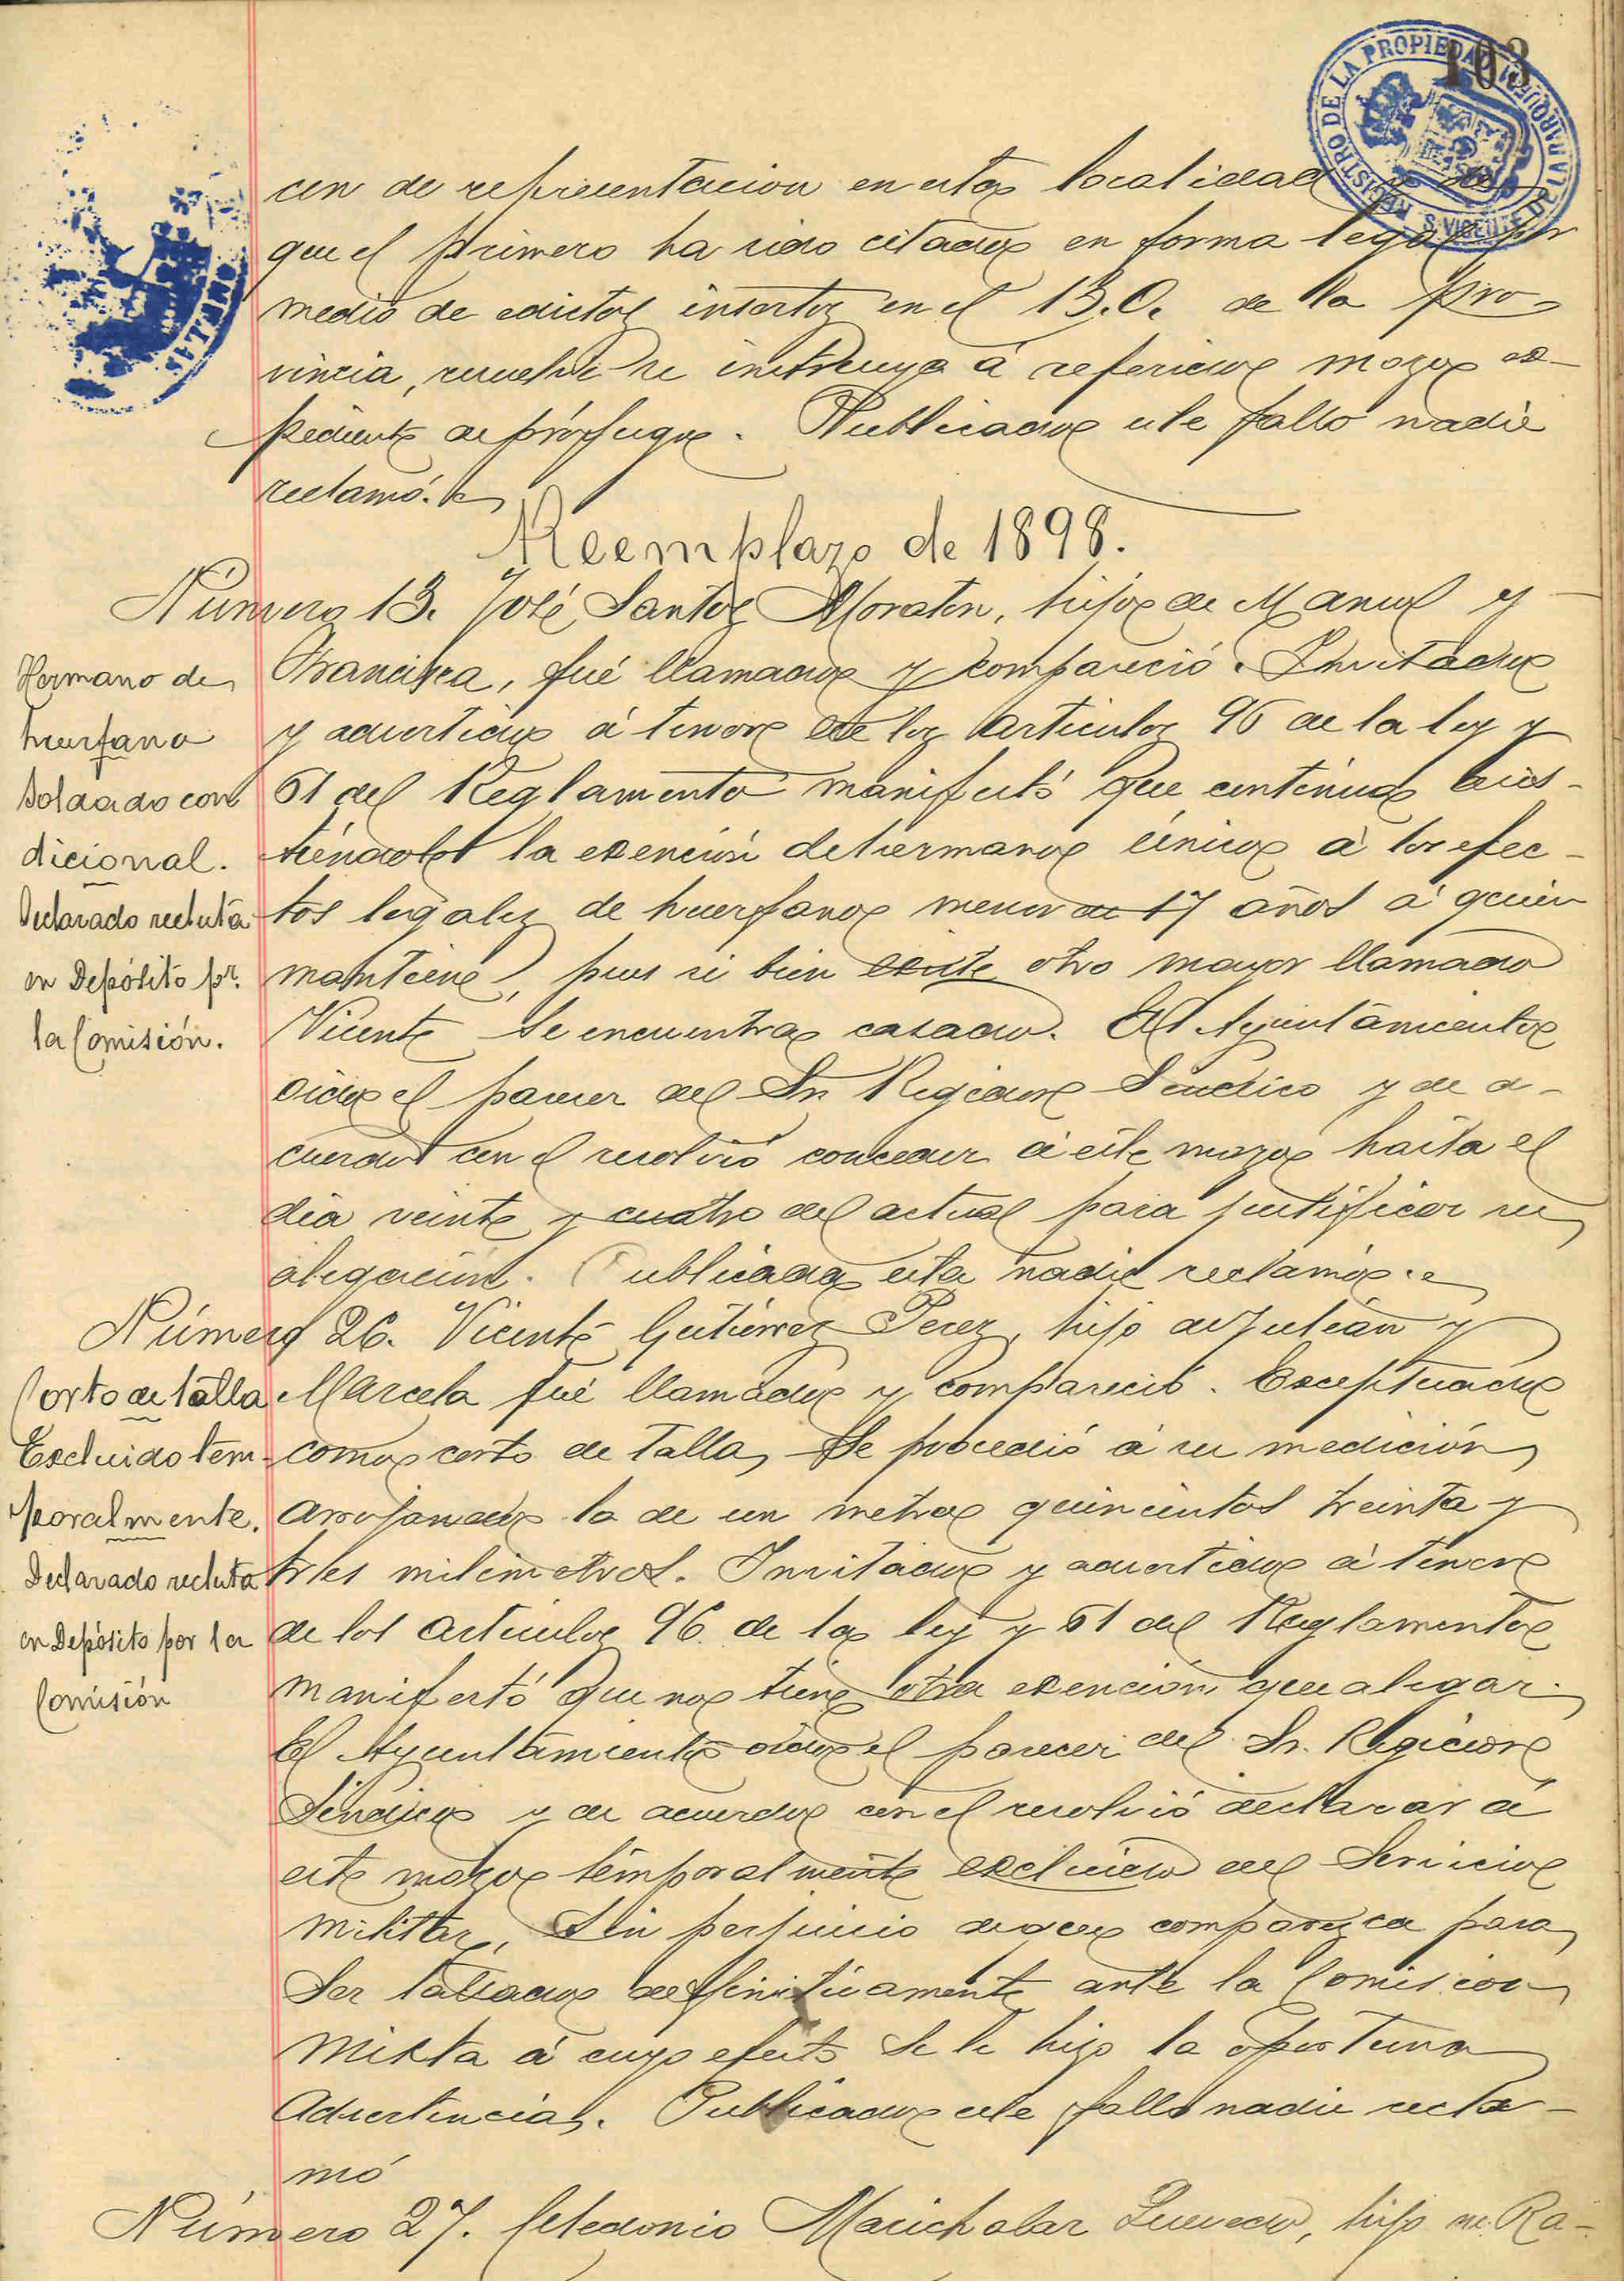 103
REGISTRO DE LA PROPIEDAD
S. VICENTE
cen de representacion en esta localidad y de
que el primero ha sido citado en forma legal por
medio de edictos insertos en el B.O. de la pro-
vincia, resuelve se instruya á referido mozo ex-
pediente de prófugo. Publicado este fallo nadie
reclamó.
Reemplazo de 1898.
Número 13. José Santos Moraton, hijo de Manuel y
Francisca, fué llamado y compareció. Invitado
y advertido á tenor de los artículos 96 de la ley y
61 del Reglamento manifestó que continúa asis-
tiéndole la exención de hermano único á los efec-
tos legales de huerfano menor de 17 años á quien
mantiene, pues si bien existe otro mayor llamado
Vicente se encuentra casado. El Ayuntamiento
oido el parecer del Sr. Regidor Síndico y de a-
cuerdo con el resolvió conceder á este mozo hasta el
dia veinte y cuatro del actual para justificar su
alegación. Publicada esta nadie reclamó.
Hermano de
huerfano
Soldado con
dicional.
Declarado recluta
en Depósito pr.
la Comisión.
Número 26. Vicente Gutiérrez Perez, hijo de Julián y
Marcela fué llamado y compareció. Exceptuado
como corto de talla, se procedió á su medición
arrojando la de un metro quinientos treinta y
tres milimetros. Invitado y advertido á tenor
de los artículos 96 de la ley y 61 del Reglamento
manifestó que no tiene otra exención que alegar.
El Ayuntamiento oido el parecer del Sr. Regidor
Síndico y de acuerdo con el resolvió declarar á
este mozo temporalmente excluido del Servicio
militar, sin perjuicio de que comparezca para
ser tallado definitivamente ante la Comision
mixta á cuyo efecto se le hizo la oportuna
advertencia. Publicado este fallo nadie recla-
mó
Corto de talla
Excluido tem-
poralmente.
Declarado recluta
en Depósito por la
Comisión
Número 27. Celedonio Marichalar Quevedo, hijo de Ra-